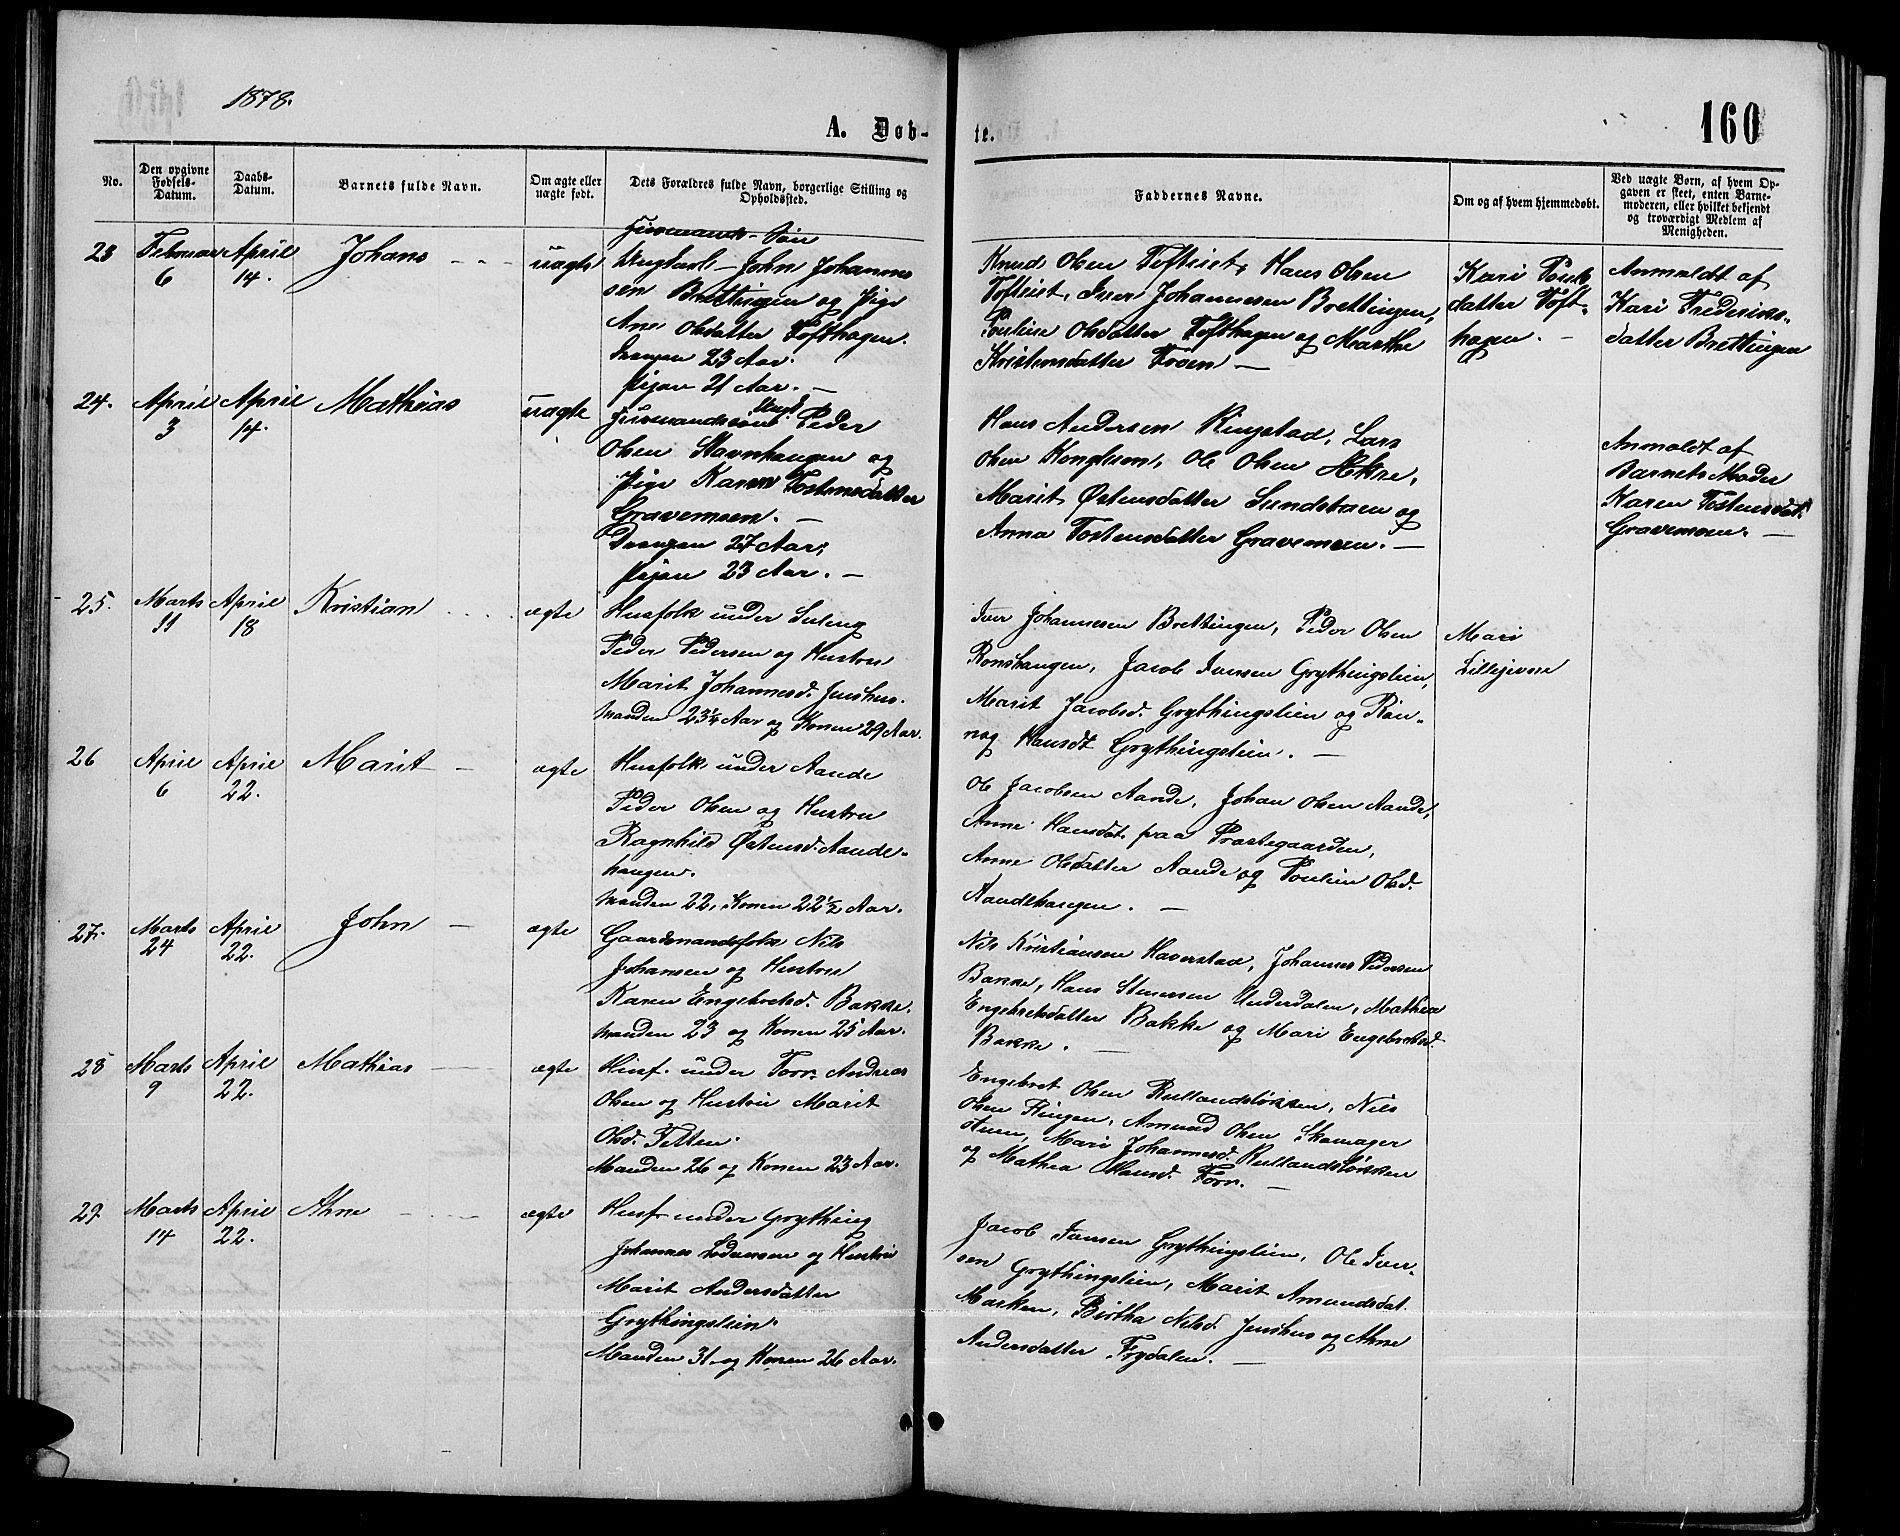 1878.
160
A. Døb-
te.
No.
Den opgivne
Fødsels-
Datum.
Daabs-
Datum.
Barnets fulde Navn.
Om ægte eller
uægte født.
Dets Forældres fulde Navn, borgerlige Stilling og
Opholdssted.
Faddernes Navne.
Om og af hvem hjemmedøbt.
Ved uægte Børn, af hvem Op-
gaven er skeet, enten Barne-
moderen, eller hvilket bekjendt
og troværdigt Medlem af
Menigheden.
23
Februar
6
April
14.
Johans
uægte
Søn
Ungkarl - John Johannes
sen Brettingen og Pige
Ane Olsdatter Tofthagen.
Drengen 23 Aar.
Pigen 21 Aar. —
Knud Olsen Tofteiet, Hans Olsen
Tofteiet, Iver Johannesen Brettingen,
Pouline Olsdatter Tofthagen og Marthe
Kristensdatter Froen —
Kari
datter Toft-
hagen. -
Anmeldt af
Kari Frederiks-
datter Brettingen
24.
April
3
April
14.
Mathias
uægte
Ungk.
Peder
Olsen Stavnhaugen og
Pige Karen Tostensdatter
Gravemoen. —
Drengen 27 Aar,
Pigen 23 Aar. —
Hans Andersen Ringstad, Lars
Olsen Konglsmo, Ole Olsen Ekre,
Marit Østensdatter Sundsbroen og
Anna Tostensdatter Gravemoen. —
Anmeldt af
Barnets Moder
Karen Tostensdat.
Gravemoen. —
25.
Marts
11
April
18
Kristian
ægte
Husfolk under Suleng
Peder Pedersen og Hustru
Marit Johannesd. Jenshus.
Manden 23½ Aar og Konen 29 Aar.
Iver Johannesen Brettingen, Peder Olsen
Ronshaugen, Jacob Iversen Grythingslien,
Marit Jacobsd. Grythingslien og Rön-
nog Hansdt Grythingslien. —
Mari
Lillejevne
26
April
6
April
22.
Marit —
ægte
Husfolk under Aande
Peder Olsen og Hustru
Ragnhild Østensd. Aande-
haugen.
Manden 22, Konen 22½ Aar.
Ole Jacobsen Aande, Johan Olsen Aande,
Anne Hansdat. paa Præstegaarden,
Anne Olsdatter Aande og Poulin Olsd.
Aandehaugen. —
27.
Marts
24
April
22.
John —
ægte
Gaardmandsfolk Nils
Johansen og Hustru
Karen Engebretsd. Bakke.
Manden 23 og Konen 25 Aar.
Nils Kristiansen Haverstad, Johannes Pedersen
Bakke, Hans Stenersen Underdalen, Mathea
Engebretsdatter Bakke og Mari Engebretsd.
Bakke. —
28
Marts
9
April
22.
Mathias —
ægte
Husf. under Forr Andreas
Olsen og Hustru Marit
Olsd. Tetten.
Manden 26 og Konen 23 Aar.
Engebret Olsen Rustlandsløkken, Nils
Olsen Ringen, Amund Olsen Skomager
stuen, Mari Johannesd. Rustlandsløkken
og Mathea Hansd. Forr. —
29.
Marts
14
April
22.
Ahne
ægte
Husf under Grything
Johannes og Hustru
Marit Andersdatter
Grythingslien.
Manden 31 og Konen 26 Aar.
Jacob Iversen Grythingslien, Ole Iver-
sen Grythingslien, Marit Amundsdat.
Marken, Birtha Nilsd. Jenshus og Ahne
Andersdatter Frydalen. —